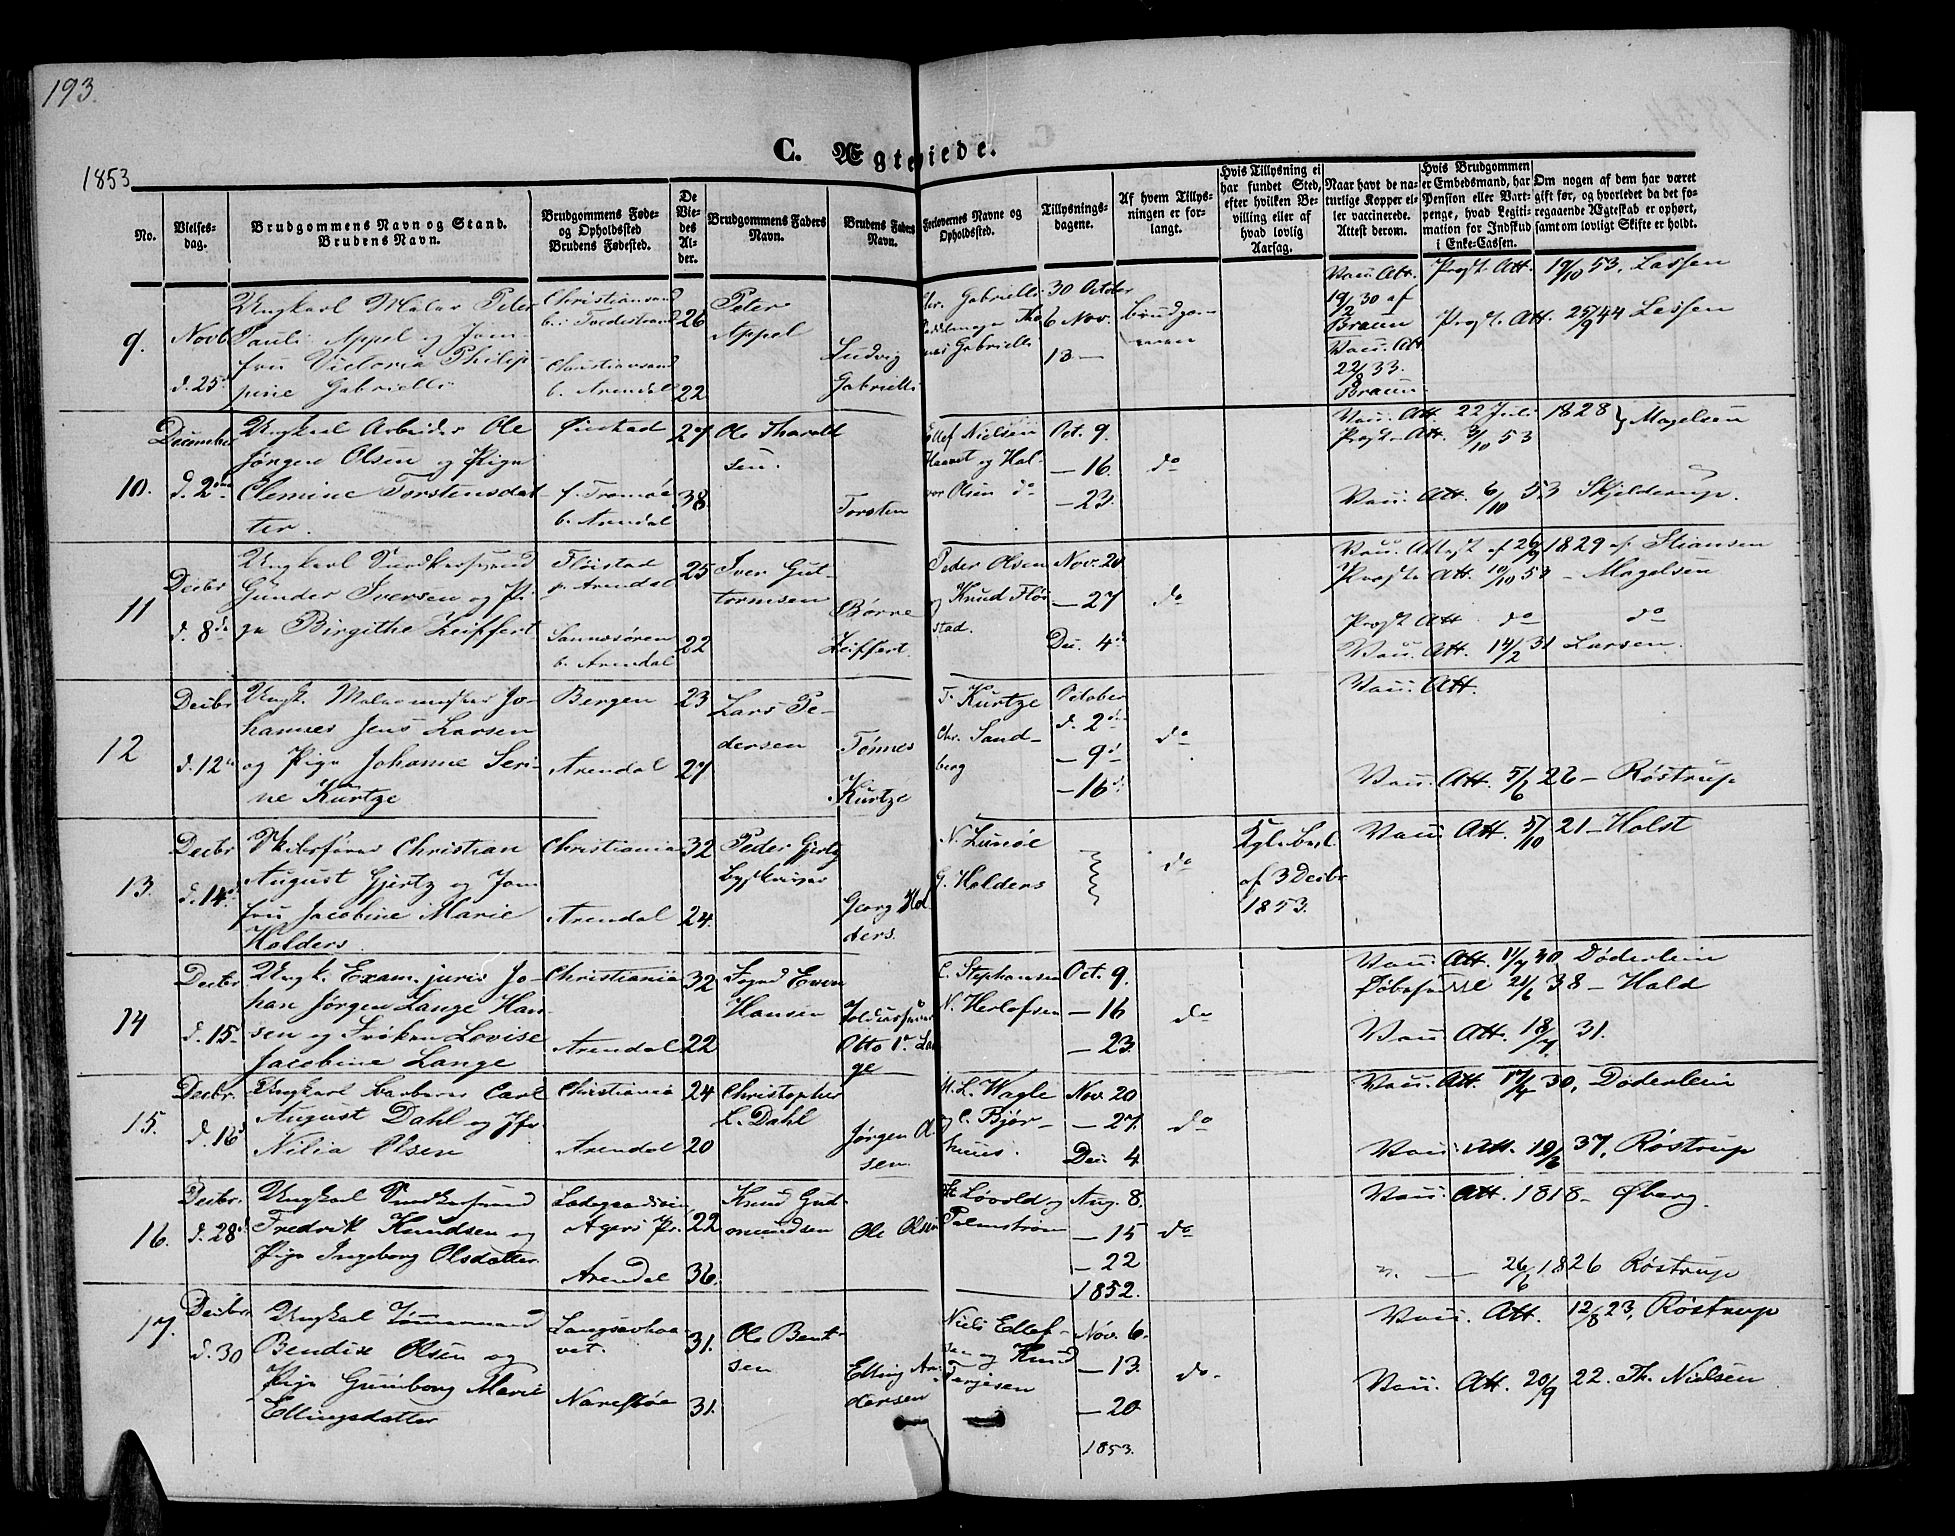 193.
C. Ægteviede.
1853
No.
Vielses-
dag.
Brudgommens Navn og Stand.
Brudens Navn.
Brudgommens Føde-
og Opholdssted
Brudens Fødested.
De
Vie-
des
Al-
der.
Brudgommens Faders
Navn.
Brudens Faders
Navn.
Forlovernes Navne og
Opholdssted.
Tillysnings-
dagene.
Af hvem Tillys-
ningen er for-
langt.
Hvis Tillysning ei
har fundet Sted,
efter hvilken Be-
villing eller af
hvad lovlig
Aarsag.
Naar havt de na-
turlige Kopper el-
ler vaccinerede.
Attest derom.
Hvis Brudgommen
er Embedsmand, har
Pension eller Vart-
penge, hvad Legiti-
mation for Indskud
i Enke-Cassen.
Om nogen af dem har været
gift før, og hvorledet da det fo-
regaaende Ægteskab er ophørt,
samt om lovligt Skifte er holdt.
9.
Novb
d. 25
Ungkarl Maler Peter
Pauli Appel og Jom-
fru Victoria Philip-
pine Gabrielli
Christiansand
b. Tvedestrand
Christiansand
b. Arendal
26
22
Peter
Appel
Ludvig
Gabrielli
Chr. Gabrielli
Gabrielli
30 October
6 Nov.
13 —
Brudgom-
men
Vacc. Att.
19/2 30 af
Braun
Vacc. Att
22/8 33.
Braun
Præst. Att. 19/10 53. Lassen
Præst. Att. 25/9 44 Lassen
10.
December
d. 2den
Ungkarl Arbeider Ole
Jørgen Olsen og Pige
Clemine Torstensdat
ter.
Øiestad
f. Tromøe
b. Arendal
27
38
Ole Tharald
sen.
Torsten
Ellef Nielsen
Haavet og Hal-
vor Olsen do
Oct. 9.
— 16.
— 23.
do
Vacc. Att. 22 Juli 1828 } Magelsen
Præst. Att. 3/10 53
Vacc. Att. 6/10 53 Skjelderup.
11
Decbr
d. 8de
Gunder Iversen og Pi-
ge Birgithe Zeiffert
Fløistad
p. Arendal
Sannesøren
b. Arendal
25
22
Iver Gut-
tormsen
Børre
Zeiffert
Peder Olsen
og Knud Fløi
stad.
Nov. 20
— 27
Dec. 4de
do
Vacc. Attest af 26/9 1829 af Stiansen
Præst. Att. 10/10 53 – Magelsen
Præst Att do do
Vacc. Att. 14/2 31 Larsen.
12
Decbr
d. 12te
Ungk. Malermester Jo-
hannes Jens Larsen
og Pige Johanne Seri-
ne Kurtze
Bergen
Arendal
23
27
Lars Pe-
dersen
Tønnes
Kurtze
T. Kurtze
Chr. Sand-
berg
October
d. 2den
— 9de
— 16de
do
Vacc. Att.
Vacc. Att. 5/6 26 – Røstrup
13.
Decbr
d. 14de
Skibsfører Christian
August Gjertz og Jom
fru Jacobine Marie
Holders.
Christiania
Arendal
32
24.
Peder Gjertz
Byskriver
Georg Hol
ders.
N. Lunøe
G. Holders
do
Kgl. Bevl.
af 3 Decbr
1853.
Vacc. Att. 5/10 21 – Holst
14
Decbr
d. 15
Ungk. Exam. juris Jo-
han Jørgen Lange Han-
sen og Frøken Lovise
Jacobine Lange
Christiania
Arendal
32
22
Foged Even
Hansen
Otto Lan
ge
C. Stephansen
N. Herlofsen
Oct. 9.
— 16
— 23.
do
Vacc. Att. 11/7 30 Døderlein
21/6 38 – Hald
Vacc. Att. 18/7 31.
15.
Decbr.
d. 16de
Ungkarl Barberer Carl
August Dahl og Jfr
Nilia Olsen
Christiania
Arendal
24
20
Christopher
L. Dahl
Jørgen Ol
sen.
M. L. Wagle
og C. Bjør-
huus.
Nov. 20
— 27.
Dec. 4
do
Vacc. Att. 17/4 30, Døderlein
Vacc. Att. 19/6 37. Røstrup
16.
Decbr.
d. 28de
Fredrik Knudsen og
Pige Ingeborg Olsdatter
Agers Pr.
Arendal
22
36.
Knud Gud
mundsen
Ole Olsen
Løvold og
Palmstrøm
Aug. 8.
— 15
— 22
1852.
do
Vacc. Att. 1818 – Øberg
" — 26/6 1826 Røstrup
17.
Decbr
d. 30
Ungkarl Tømmermand
Bendix Olsen og
Pige Gunborg Marie
Ellingsdatter
Langsævhaa-
vet.
Narestøe
31.
31.
Ole Bent-
sen
Elling An-
dersen
Niels Ellef-
sen og Knud
Terjesen
Nov. 6.
— 13.
— 20.
1853.
do.
Vacc. Att. 12/8 23, Røstrup
Vacc. Att. 20/9 22. Th. Nielsen